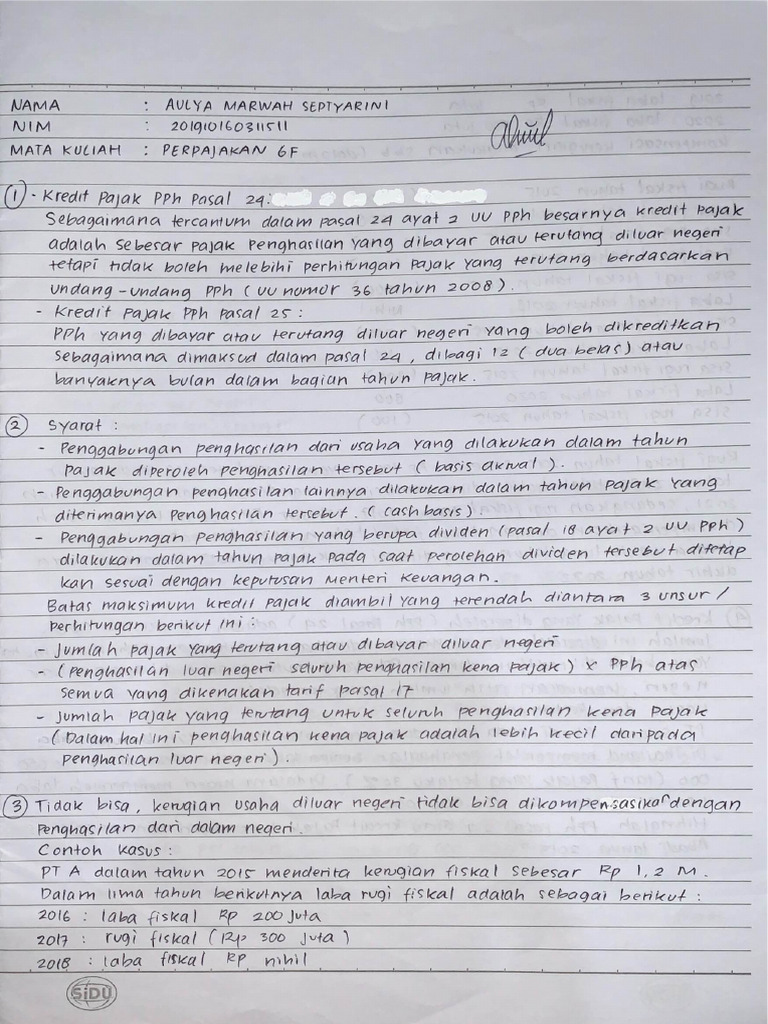 NAMA : AULYA MARWAH SEPTYARINI
NIM : 201910160311511
MATA KULIAH : PERPAJAKAN 6F
① - Kredit Pajak PPh Pasal 24:
Sebagaimana tercantum dalam pasal 24 ayat 2 UU PPh besarnya kredit pajak
adalah sebesar pajak penghasilan yang dibayar atau terutang diluar negeri
tetapi tidak boleh melebihi perhitungan pajak yang terutang berdasarkan
undang-undang PPh (UU nomor 36 tahun 2008).
- Kredit Pajak PPh Pasal 25 :
PPh yang dibayar atau terutang diluar negeri yang boleh dikreditkan
sebagaimana dimaksud dalam pasal 24, dibagi 12 (dua belas) atau
banyaknya bulan dalam bagian tahun pajak.
② Syarat :
- Penggabungan penghasilan dari usaha yang dilakukan dalam tahun
pajak diperoleh penghasilan tersebut (basis akrual).
- Penggabungan penghasilan lainnya dilakukan dalam tahun pajak yang
diterimanya penghasilan tersebut. (cash basis)
- Penggabungan penghasilan yang berupa dividen (pasal 18 ayat 2 UU PPh)
dilakukan dalam tahun pajak pada saat perolehan dividen tersebut ditetap
kan sesuai dengan keputusan Menteri Keuangan.
Batas maksimum kredit pajak diambil yang terendah diantara 3 unsur /
perhitungan berikut ini :
- Jumlah pajak yang terutang atau dibayar diluar negeri
- (Penghasilan luar negeri seluruh penghasilan kena pajak) x PPh atas
semua yang dikenakan tarif pasal 17
- Jumlah pajak yang terutang untuk seluruh penghasilan kena pajak
(Dalam hal ini penghasilan kena pajak adalah lebih kecil daripada
penghasilan luar negeri).
③ Tidak bisa, kerugian usaha diluar negeri tidak bisa dikompensasikan dengan
penghasilan dari dalam negeri.
Contoh kasus :
PT A dalam tahun 2015 menderita kerugian fiskal sebesar Rp 1,2 M.
Dalam lima tahun berikutnya laba rugi fiskal adalah sebagai berikut :
2016 : laba fiskal Rp 200 juta
2017 : rugi fiskal (Rp 300 juta)
2018 : laba fiskal Rp nihil
SiDU